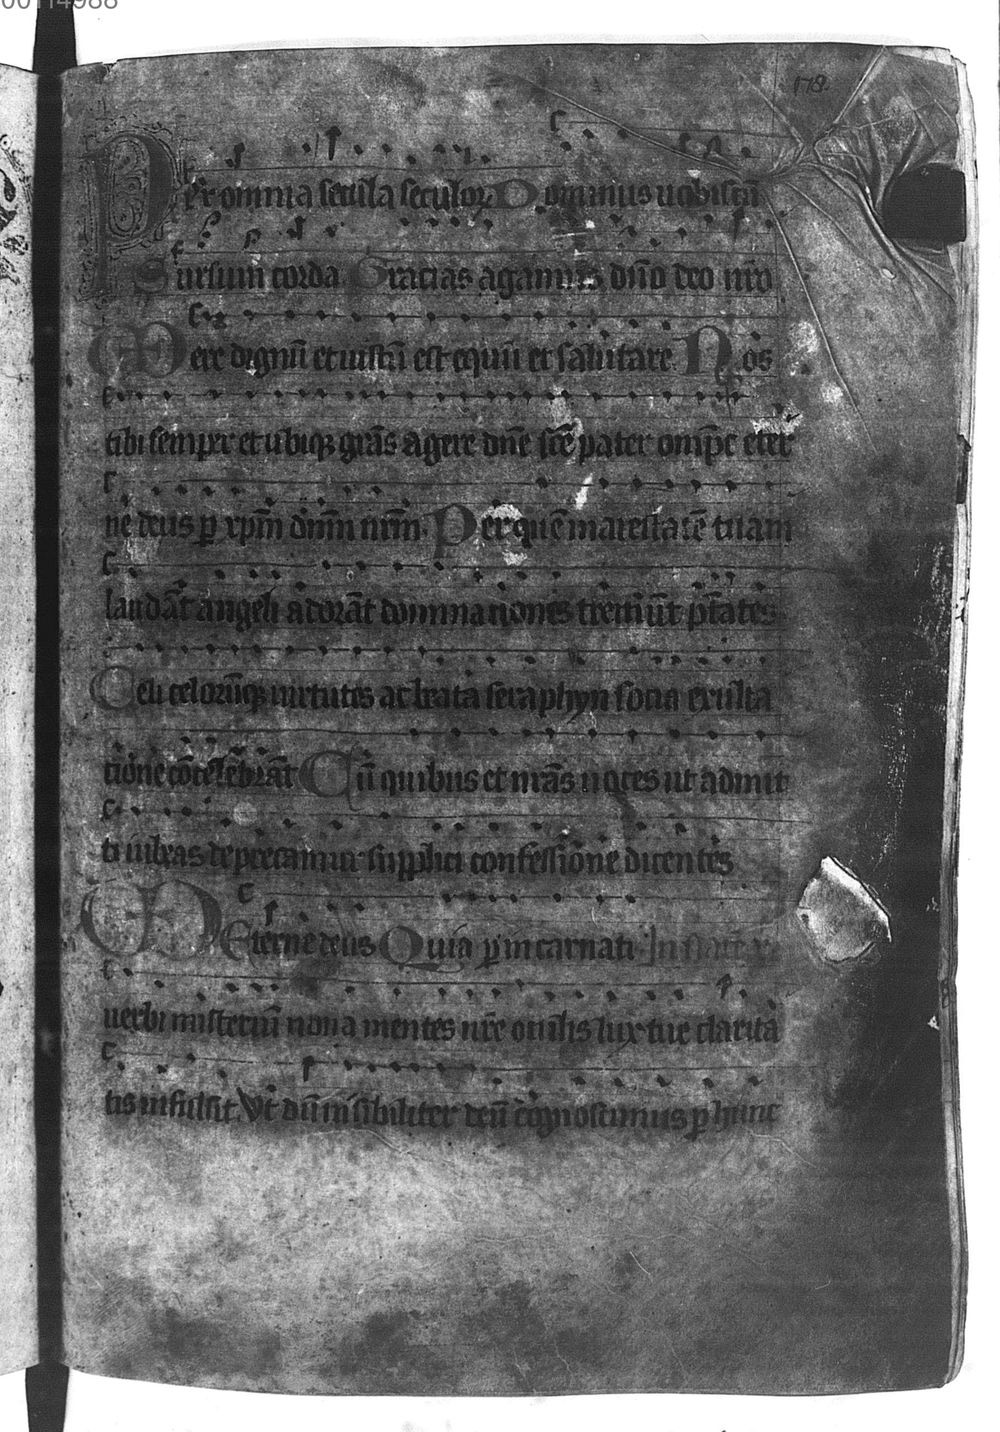 00114988
178
Per omnia secula seculoꝝ Dominus uobiscū
Sursum corda Gracias agamus dn̄o deo nr̄o
Vere dignū et iustū est equū et salutare Nos
tibi semper et ubiqꝫ grās agere dn̄e sc̄e pater omp̄c eter
ne deus ꝑ xp̄m dn̄m nr̄m Per quē maiestatē tuam
laudāt angeli adorāt dominationes tremūt pt̄ates
Celi celorūqꝫ uirtutes ac beata seraphyn socia exulta
tione cōcelebrāt Cū quibus et nrās uoces ut admit
ti iubeas deprecamur supplici confessione dicentes
Eterne deus Quia ꝑ incarnati
uerbi misteriū noua mentes nr̄e oculis lux tue clarita
tis infulsit Vt dū uisibiliter deū cognoscimus ꝑ hunc